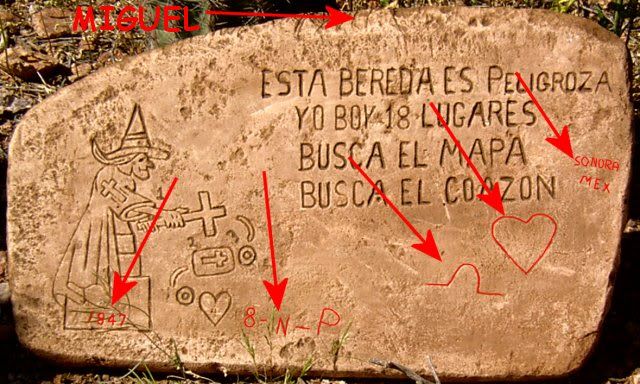 MIGUEL
ESTA BEREDA ES PELIGROZA
YO BOY 18 LUGARES
BUSCA EL MAPA
BUSCA EL CORZON
SONORA
MEX
1847
8-N-P